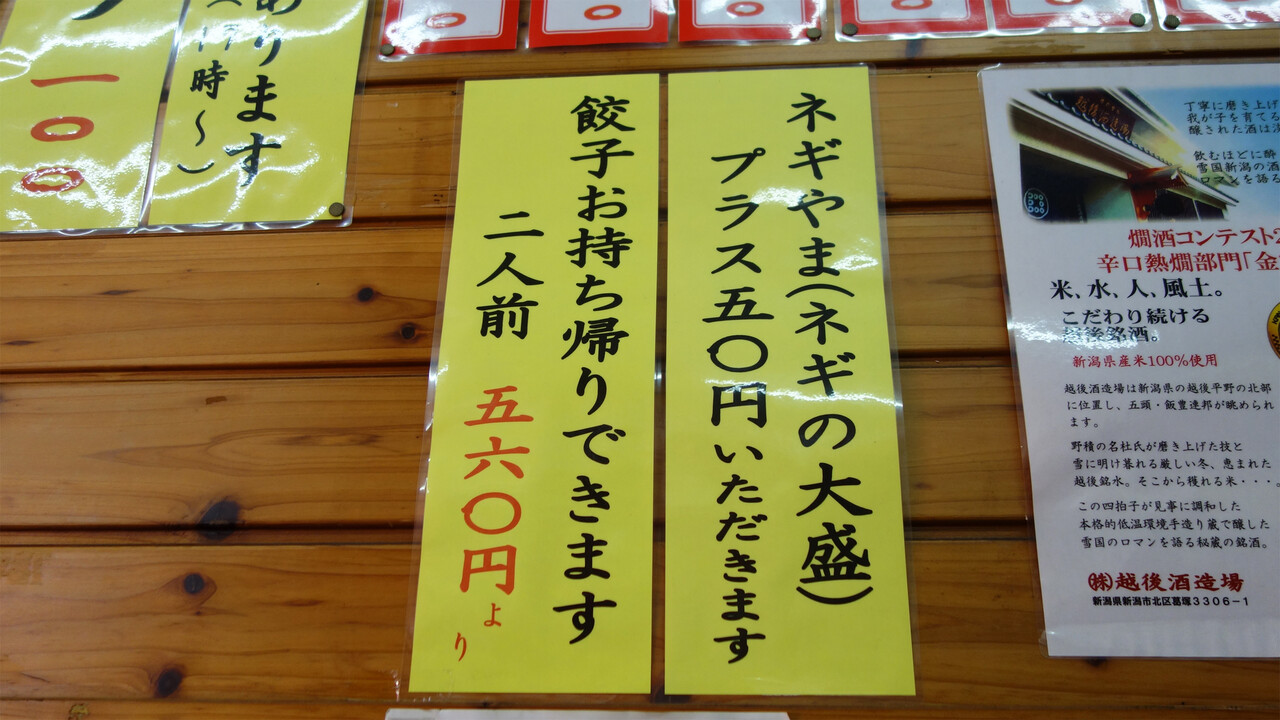 ネギやま(ネギの大盛)
プラス五〇円いただきます
餃子お持ち帰りできます
二人前 五六〇円より
あります
(17時～)
一〇〇
丁寧に磨き上げ
我が子を育てる
醸された酒は
飲むほどに酔
雪国新潟の酒
ロマンを語る
燗酒コンテスト2
辛口熱燗部門「金
米、水、人、風土。
こだわり続ける
越後銘酒。
新潟県産米100%使用
越後酒造場は新潟県の越後平野の北部
に位置し、五頭・飯豊連邦が眺められ
ます。
野積の名杜氏が磨き上げた技と
雪に明け暮れる厳しい冬、恵まれた
越後銘水。そこから穫れる米・・・。
この四拍子が見事に調和した
本格的低温環境手造り蔵で醸した
雪国のロマンを語る秘蔵の銘酒。
㈱越後酒造場
新潟県新潟市北区葛塚3306-1